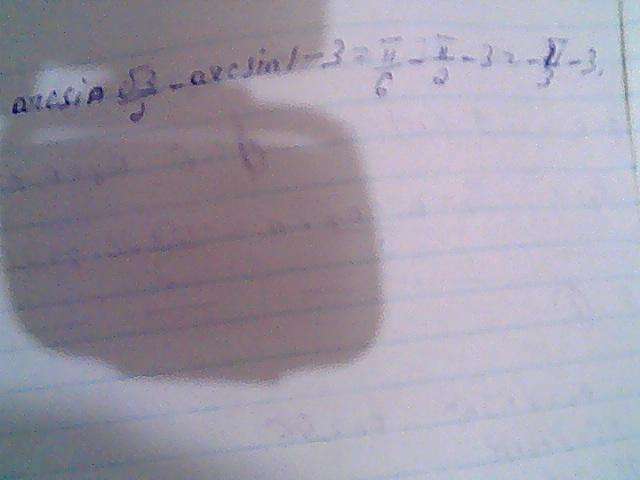 arcsin √3/2 - arcsin 1 - 3 = π/6 - π/2 - 3 = -π/3 - 3.